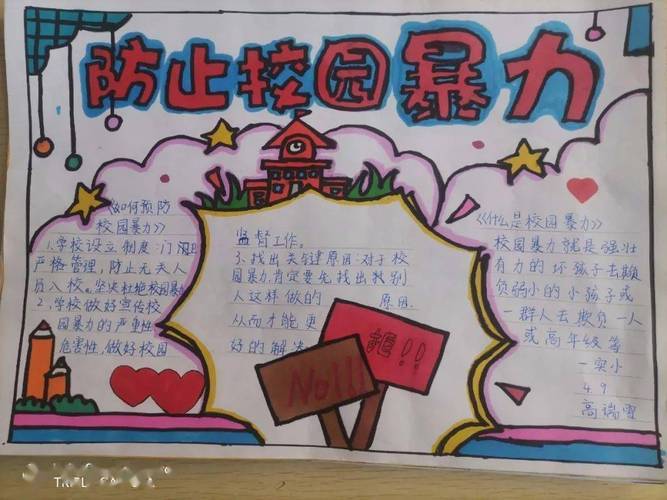 防止校园暴力
《如何预防
校园暴力》
1.学校设立制度:门卫
严格管理,防止无关人
员入校。坚决杜绝校园暴力
2、学校做好宣传校
园暴力的严重性
危害性,做好校园
监督工作。
3、找出关键原因:对于校
园暴力肯定要先找出找别
人这样做的 原因
从而才能更
好的解决
No!!!
!!!
《什么是校园暴力》
校园暴力就是强壮
有力的坏孩子去欺
负弱小的小孩子或
一群人去欺负一人
或高年级等
一实小
4.9
高瑞雪